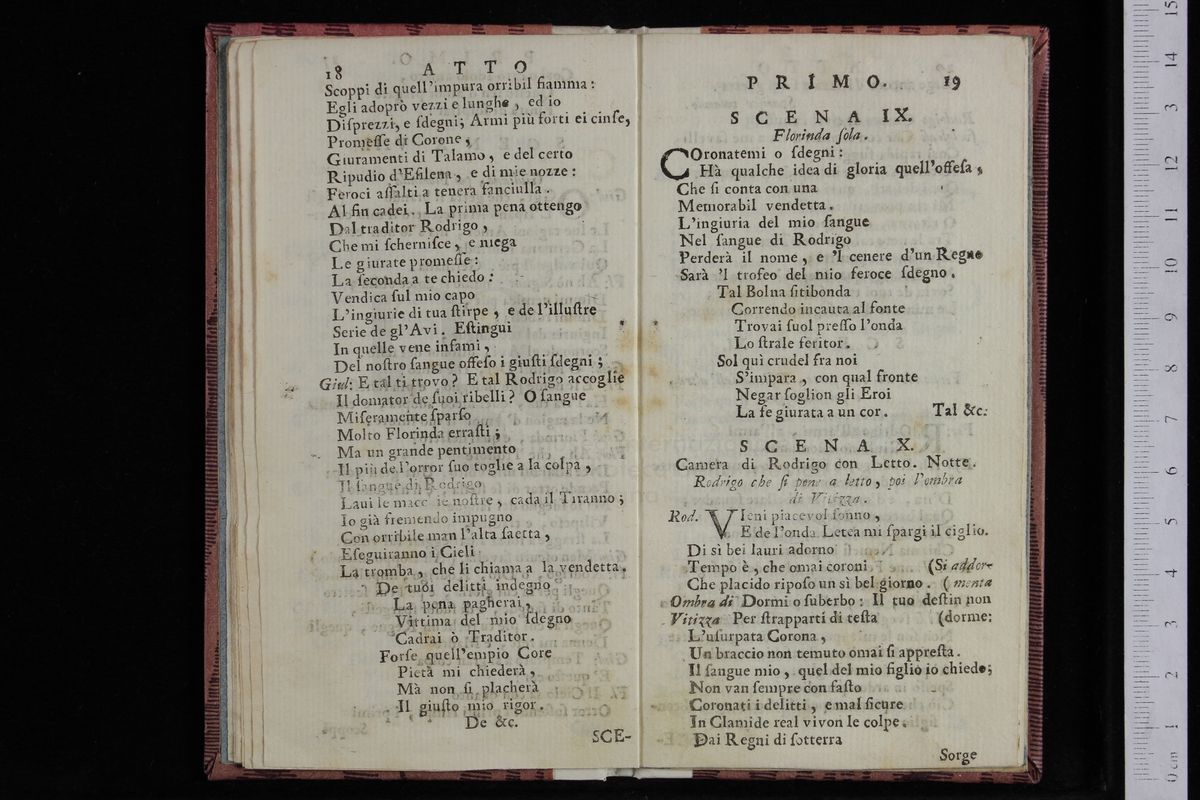 18 ATTO
Scoppi di quell'impura orribil fiamma:
Egli adoprò vezzi e lunghe, ed io
Diſprezzi, e ſdegni; Armi più forti ei cinſe,
Promeſſe di Corone,
Giuramenti di Talamo, e del certo
Ripudio d'Eſilena, e di mie nozze:
Feroci aſſalti a tenera fanciulla.
Al fin cadei. La prima pena ottengo
Dal traditor Rodrigo,
Che mi ſcherniſce, e niega
Le giurate promeſſe:
La ſeconda a te chiedo:
Vendica ſul mio capo
L'ingiurie di tua ſtirpe, e de l'illuſtre
Serie de gl'Avi. Eſtingui
In quelle vene infami,
Del noſtro ſangue offeſo i giuſti ſdegni;
Giul: E tal ti trovo? E tal Rodrigo accoglie
Il domator de ſuoi ribelli? O ſangue
Miſeramente ſparſo
Molto Florinda erraſti;
Ma un grande pentimento
Il più de l'orror ſuo toglie a la colpa,
Il ſangue di Rodrigo
Laui le macc ie noſtre, cada il Tiranno;
Io già fremendo impugno
Con orribile man l'alta ſaetta,
Eſeguiranno i Cieli
La tromba, che li chiama a la vendetta.
De tuoi delitti indegno
La pena pagherai,
Vittima del mio ſdegno
Cadrai ò Traditor.
Forſe quell'empio Core
Pietà mi chiederà,
Mà non ſi placherà
Il giuſto mio rigor.
De &c.
SCE-
PRIMO. 19
SCENA IX.
Florinda ſola.
COronatemi o ſdegni:
Hà qualche idea di gloria quell'offeſa,
Che ſi conta con una
Memorabil vendetta.
L'ingiuria del mio ſangue
Nel ſangue di Rodrigo
Perderà il nome, e 'l cenere d'un Regno
Sarà 'l trofeo del mio feroce ſdegno.
Tal Bolna ſitibonda
Correndo incauta al fonte
Trovai ſuol preſſo l'onda
Lo ſtrale feritor.
Sol quì crudel fra noi
S'impara, con qual fronte
Negar ſoglion gli Eroi
La fe giurata a un cor. Tal &c.
SCENA X.
Camera di Rodrigo con Letto. Notte.
Rodrigo che ſi pone a letto, poi l'ombra
di Vitizza.
Rod. VIeni piacevol ſonno,
E de l'onda Letea mi ſpargi il ciglio.
Di sì bei lauri adorno
Tempo è, che omai coroni (Si addor-
Che placido ripoſo un sì bel giorno. (menta
Ombra di Dormi o ſuberbo: Il tuo deſtin non
Vitizza Per ſtrapparti di teſta (dorme:
L'uſurpata Corona,
Un braccio non temuto omai ſi appreſta.
Il ſangue mio, quel del mio figlio io chiedo;
Non van ſempre con faſto
Coronati i delitti, e mal ſicure
In Clamide real vivon le colpe.
Dai Regni di ſotterra
Sorge